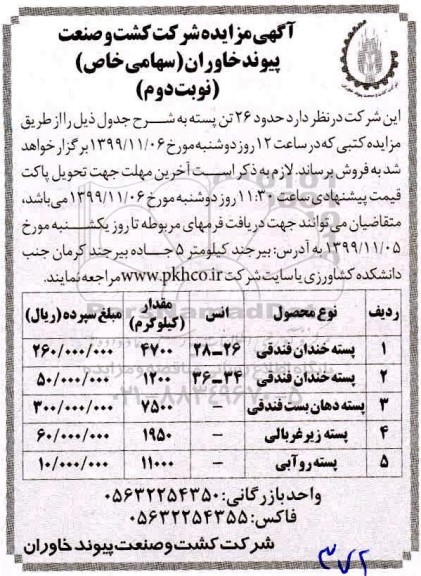 آگهی مزایده شرکت کشت و صنعت
پیوند خاوران (سهامی خاص)
(نوبت دوم)
این شرکت در نظر دارد حدود ۲۶ تن پسته به شرح جدول ذیل را از طریق
مزایده کتبی که در ساعت ۱۲ روز دوشنبه مورخ ۱۳۹۹/۱۱/۰۶ برگزار خواهد
شد به فروش برساند. لازم به ذکر است آخرین مهلت جهت تحویل پاکت
قیمت پیشنهادی ساعت ۱۱:۳۰ روز دوشنبه مورخ ۱۳۹۹/۱۱/۰۶ می‌باشد،
متقاضیان می‌توانند جهت دریافت فرمهای مربوطه تا روز یکشنبه مورخ
۱۳۹۹/۱۱/۰۵ به آدرس: بیرجند کیلومتر ۵ جاده بیرجند کرمان جنب
دانشکده کشاورزی یا سایت شرکت www.pkhco.ir مراجعه نمایند.
ردیف نوع محصول انس مقدار (کیلوگرم) مبلغ سپرده (ریال)
۱ پسته خندان فندقی ۲۶-۲۸ ۴۷۰۰ ۲۶۰/۰۰۰/۰۰۰
۲ پسته خندان فندقی ۳۴-۳۶ ۱۲۰۰ ۵۰/۰۰۰/۰۰۰
۳ پسته دهان بست فندقی - ۷۵۰۰ ۳۰۰/۰۰۰/۰۰۰
۴ پسته زیر غربالی - ۱۹۵۰ ۶۰/۰۰۰/۰۰۰
۵ پسته رو آبی - ۱۱۰۰۰ ۱۰/۰۰۰/۰۰۰
واحد بازرگانی: ۰۵۶۳۲۲۵۴۳۵۰
فاکس: ۰۵۶۳۲۲۵۴۳۵۵
شرکت کشت و صنعت پیوند خاوران
۳۷۲